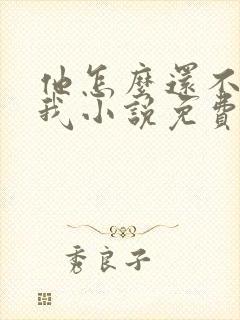 他怎麼還不
我小說免費
秀良子